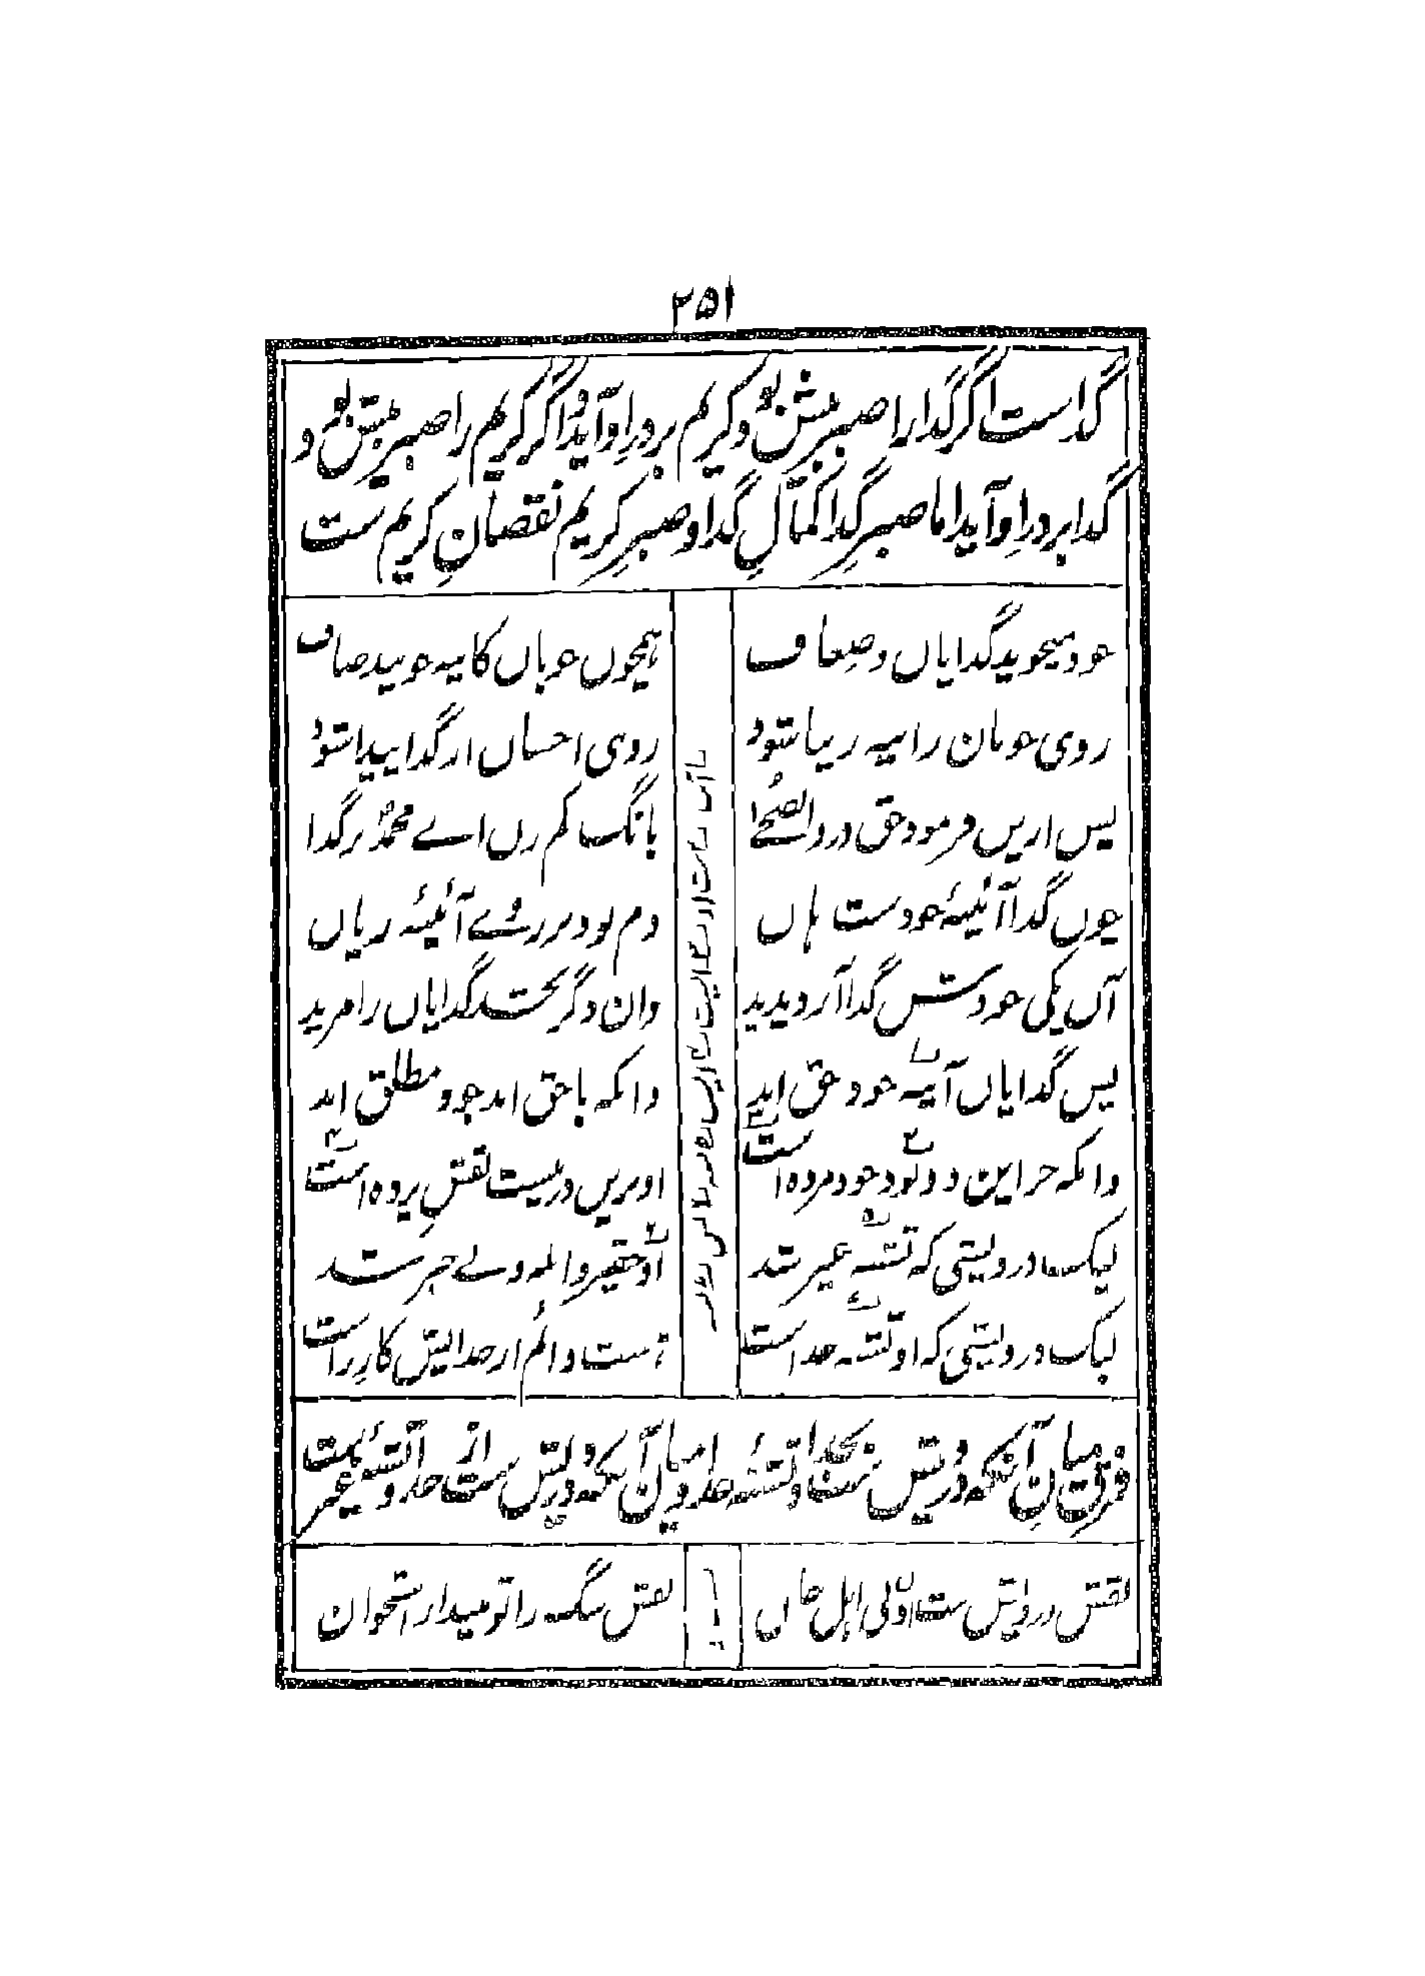 ۲۵۱
گداست اگر گدا را صبر بیش بود کریم بر درِ او آید و اگر کریم را صبر بیش بود
گدا بر درِ او آید اما صبرِ گدا کمالِ گدا و صبرِ کریم نقصانِ کریم ست
جود میجوید گدایان و ضعاف همچون خوبان کاینه جویند صاف
روی خوبان را اینه زیبا شود روی احسان از گدا پیدا شود
پس ازین فرمود حق در والضحیٰ بانگ کم زن اے محمدؐ بر گدا
چون گدا آئینۂ جودست هان دم بود بر روے آئینه زیان
آن یکی جودش گدا آرد پدید وان دگر بخشد گدایان را مزید
پس گدایان آینه جود حق اند وانکه با حق اند جود مطلق اند
وانکه جز این دو بود خود مرده است او برین در نیست نقشِ پرده است
لیک درویشی که تشنه غیر شد او حقیر و ابله و بے خیر شد
لیک درویشی که او تشنه خداست هست دائم از خدایش کار راست
فرق میانِ آنکه درویش ست بخدا و تشنۂ خدا و میانِ آنکه درویش ست از خدا و تشنۂ غیرست
نقش درویش ست او نی اهل جان نقش سگ را تو مینداز استخوان